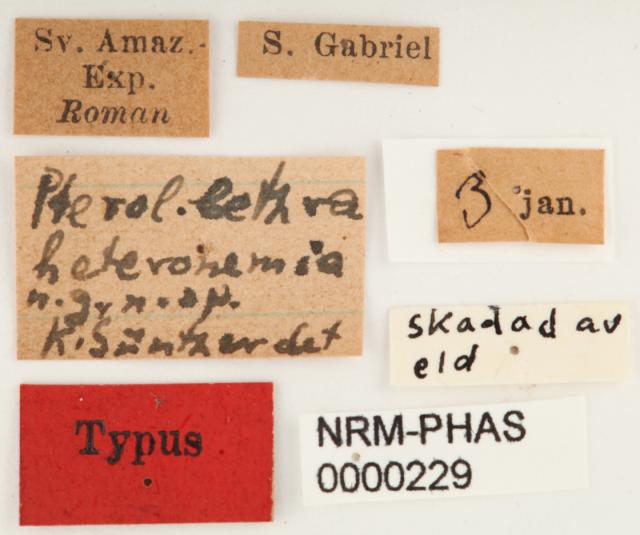 Sv. Amaz.-
Exp.
Roman
S. Gabriel
3 jan.
Pterol.bethra
heteronemia
n. g. n. sp.
K. Günther det
skadad av
eld
Typus
NRM-PHAS
0000229